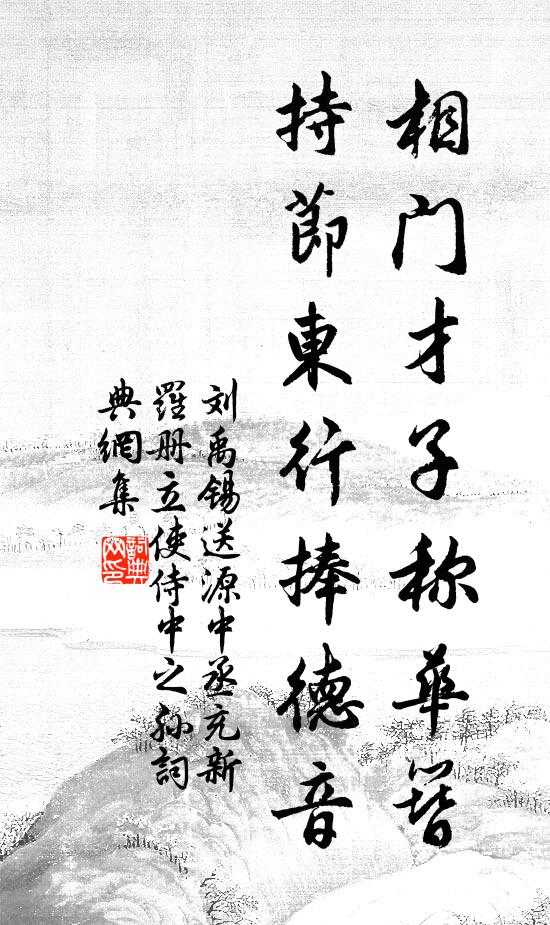 相门才子称华簪
持节東行捧德音
刘禹锡送源中丞充新
羅册立使侍中之孙詞
典網集